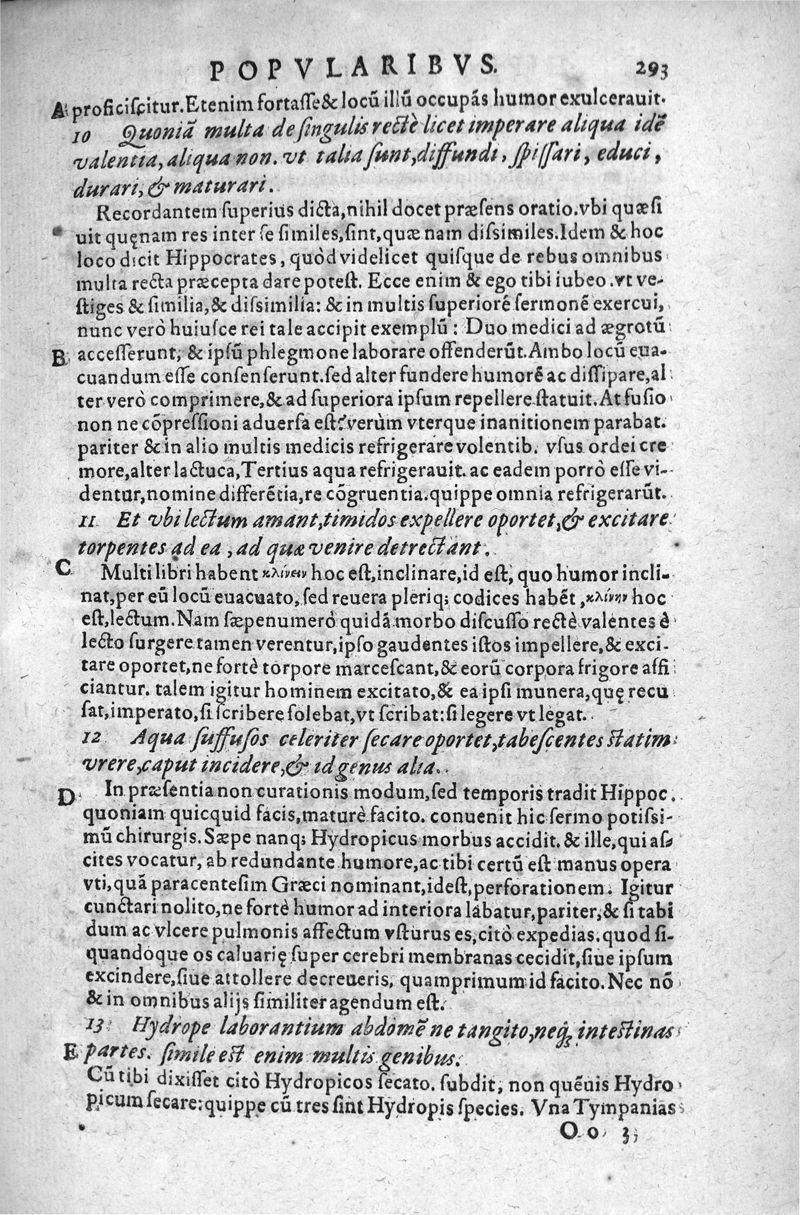 POPVLARIBVS. 293
A proficiſcitur. Etenim fortaſſe & locũ illũ occupãs humor exulcerauit.
10 Quoniã multa de ſingulis rectè licet imperare aliqua idẽ
valentia, aliqua non. vt talia ſunt, diffundi, ſpiſſari, educi,
durari, & maturari.
Recordantem ſuperius dicta, nihil docet præſens oratio. vbi quæſi
uit quęnam res inter ſe ſimiles, ſint, quæ nam diſsimiles. Idem & hoc
loco dicit Hippocrates, quòd videlicet quiſque de rebus omnibus
multa recta præcepta dare poteſt. Ecce enim & ego tibi iubeo. vt ve-
ſtiges & ſimilia, & diſsimilia: & in multis ſuperiorẽ ſermonẽ exercui,
nunc verò huiuſce rei tale accipit exemplũ: Duo medici ad ægrotũ
B acceſſerunt, & ipſũ phlegmone laborare offenderũt. Ambo locũ eua-
cuandum eſſe conſenſerunt. ſed alter fundere humorẽ ac diſſipare, al
ter verò comprimere, & ad ſuperiora ipſum repellere ſtatuit. At fuſio
non ne cõpreſſioni aduerſa eſt? verùm vterque inanitionem parabat.
pariter & in alio multis medicis refrigerare volentib. vſus ordei cre
more, alter lactuca, Tertius aqua refrigerauit. ac eadem porrò eſſe vi-
dentur, nomine differẽtia, re cõgruentia. quippe omnia refrigerarũt.
11 Et vbi lectum amant, timidos expellere oportet, & excitare
torpentes ad ea, ad quæ venire detrectant.
C Multi libri habent κλίνειν hoc eſt, inclinare, id eſt, quo humor incli-
nat, per eũ locũ euacuato, ſed reuera pleriq; codices habẽt, κλίνην hoc
eſt, lectum. Nam ſæpenumerò quidã morbo diſcuſſo rectè valentes è
lecto ſurgere tamen verentur, ipſo gaudentes iſtos impellere, & exci-
tare oportet, ne fortè torpore marceſcant, & eorũ corpora frigore affi
ciantur. talem igitur hominem excitato, & ea ipſi munera, quę recu
ſat, imperato, ſi ſcribere ſolebat, vt ſcribat: ſi legere vt legat.
12 Aqua ſuffuſos celeriter ſecare oportet, tabeſcentes ſtatim
vrere, caput incidere, & id genus alia.
D In præſentia non curationis modum, ſed temporis tradit Hippoc.
quoniam quicquid facis, maturè facito. conuenit hic ſermo potiſsi-
mũ chirurgis. Sæpe nanq; Hydropicus morbus accidit. & ille, qui aſ
cites vocatur, ab redundante humore, ac tibi certũ eſt manus opera
vti, quã paracenteſim Græci nominant, ideſt, perforationem. Igitur
cunctari nolito, ne fortè humor ad interiora labatur, pariter, & ſi tabi
dum ac vlcere pulmonis affectum vſturus es, citò expedias. quod ſi-
quandoque os caluarię ſuper cerebri membranas cecidit, ſiue ipſum
excindere, ſiue attollere decreueris, quamprimum id facito. Nec nõ
& in omnibus alijs ſimiliter agendum eſt.
13 Hydrope laborantium abdomẽ ne tangito, neq; inteſtinas
E partes. ſimile eſt enim multis genibus.
Cũ tibi dixiſſet citò Hydropicos ſecato. ſubdit, non quẽuis Hydro
picum ſecare: quippe cũ tres ſint Hydropis ſpecies. Vna Tympanias
Oo 3